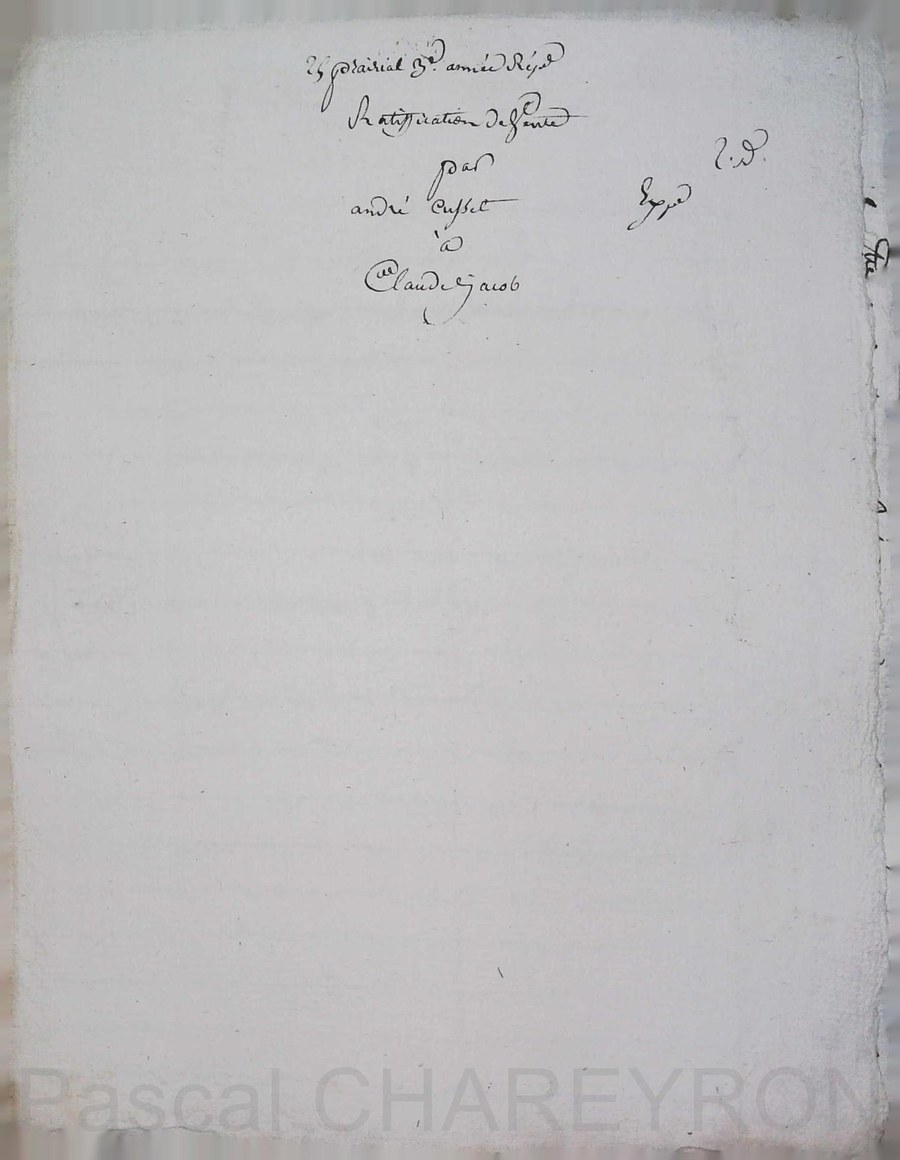 25 prairial 3e. année Répe
Ratiffication de Vente
par
andré Cusset
à
Claude jacob
2. d.
Expé
Pascal CHAREYRON